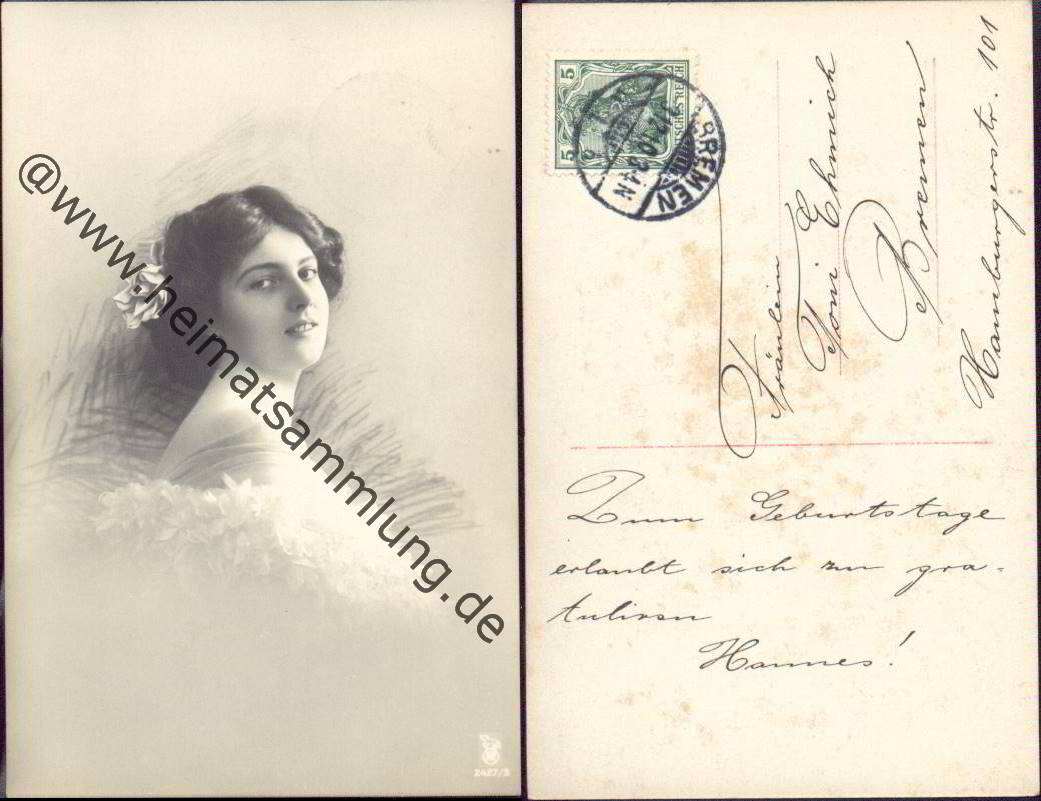 @www.heimatsammlung.de
2427/3
5
5
DEUTSCHES REICH
BREMEN
Fräulein
Toni Ehmich
Bremen
Hamburgerstr. 101
Zum Geburtstage
erlaubt sich zu gra-
tuliren
Hannes!